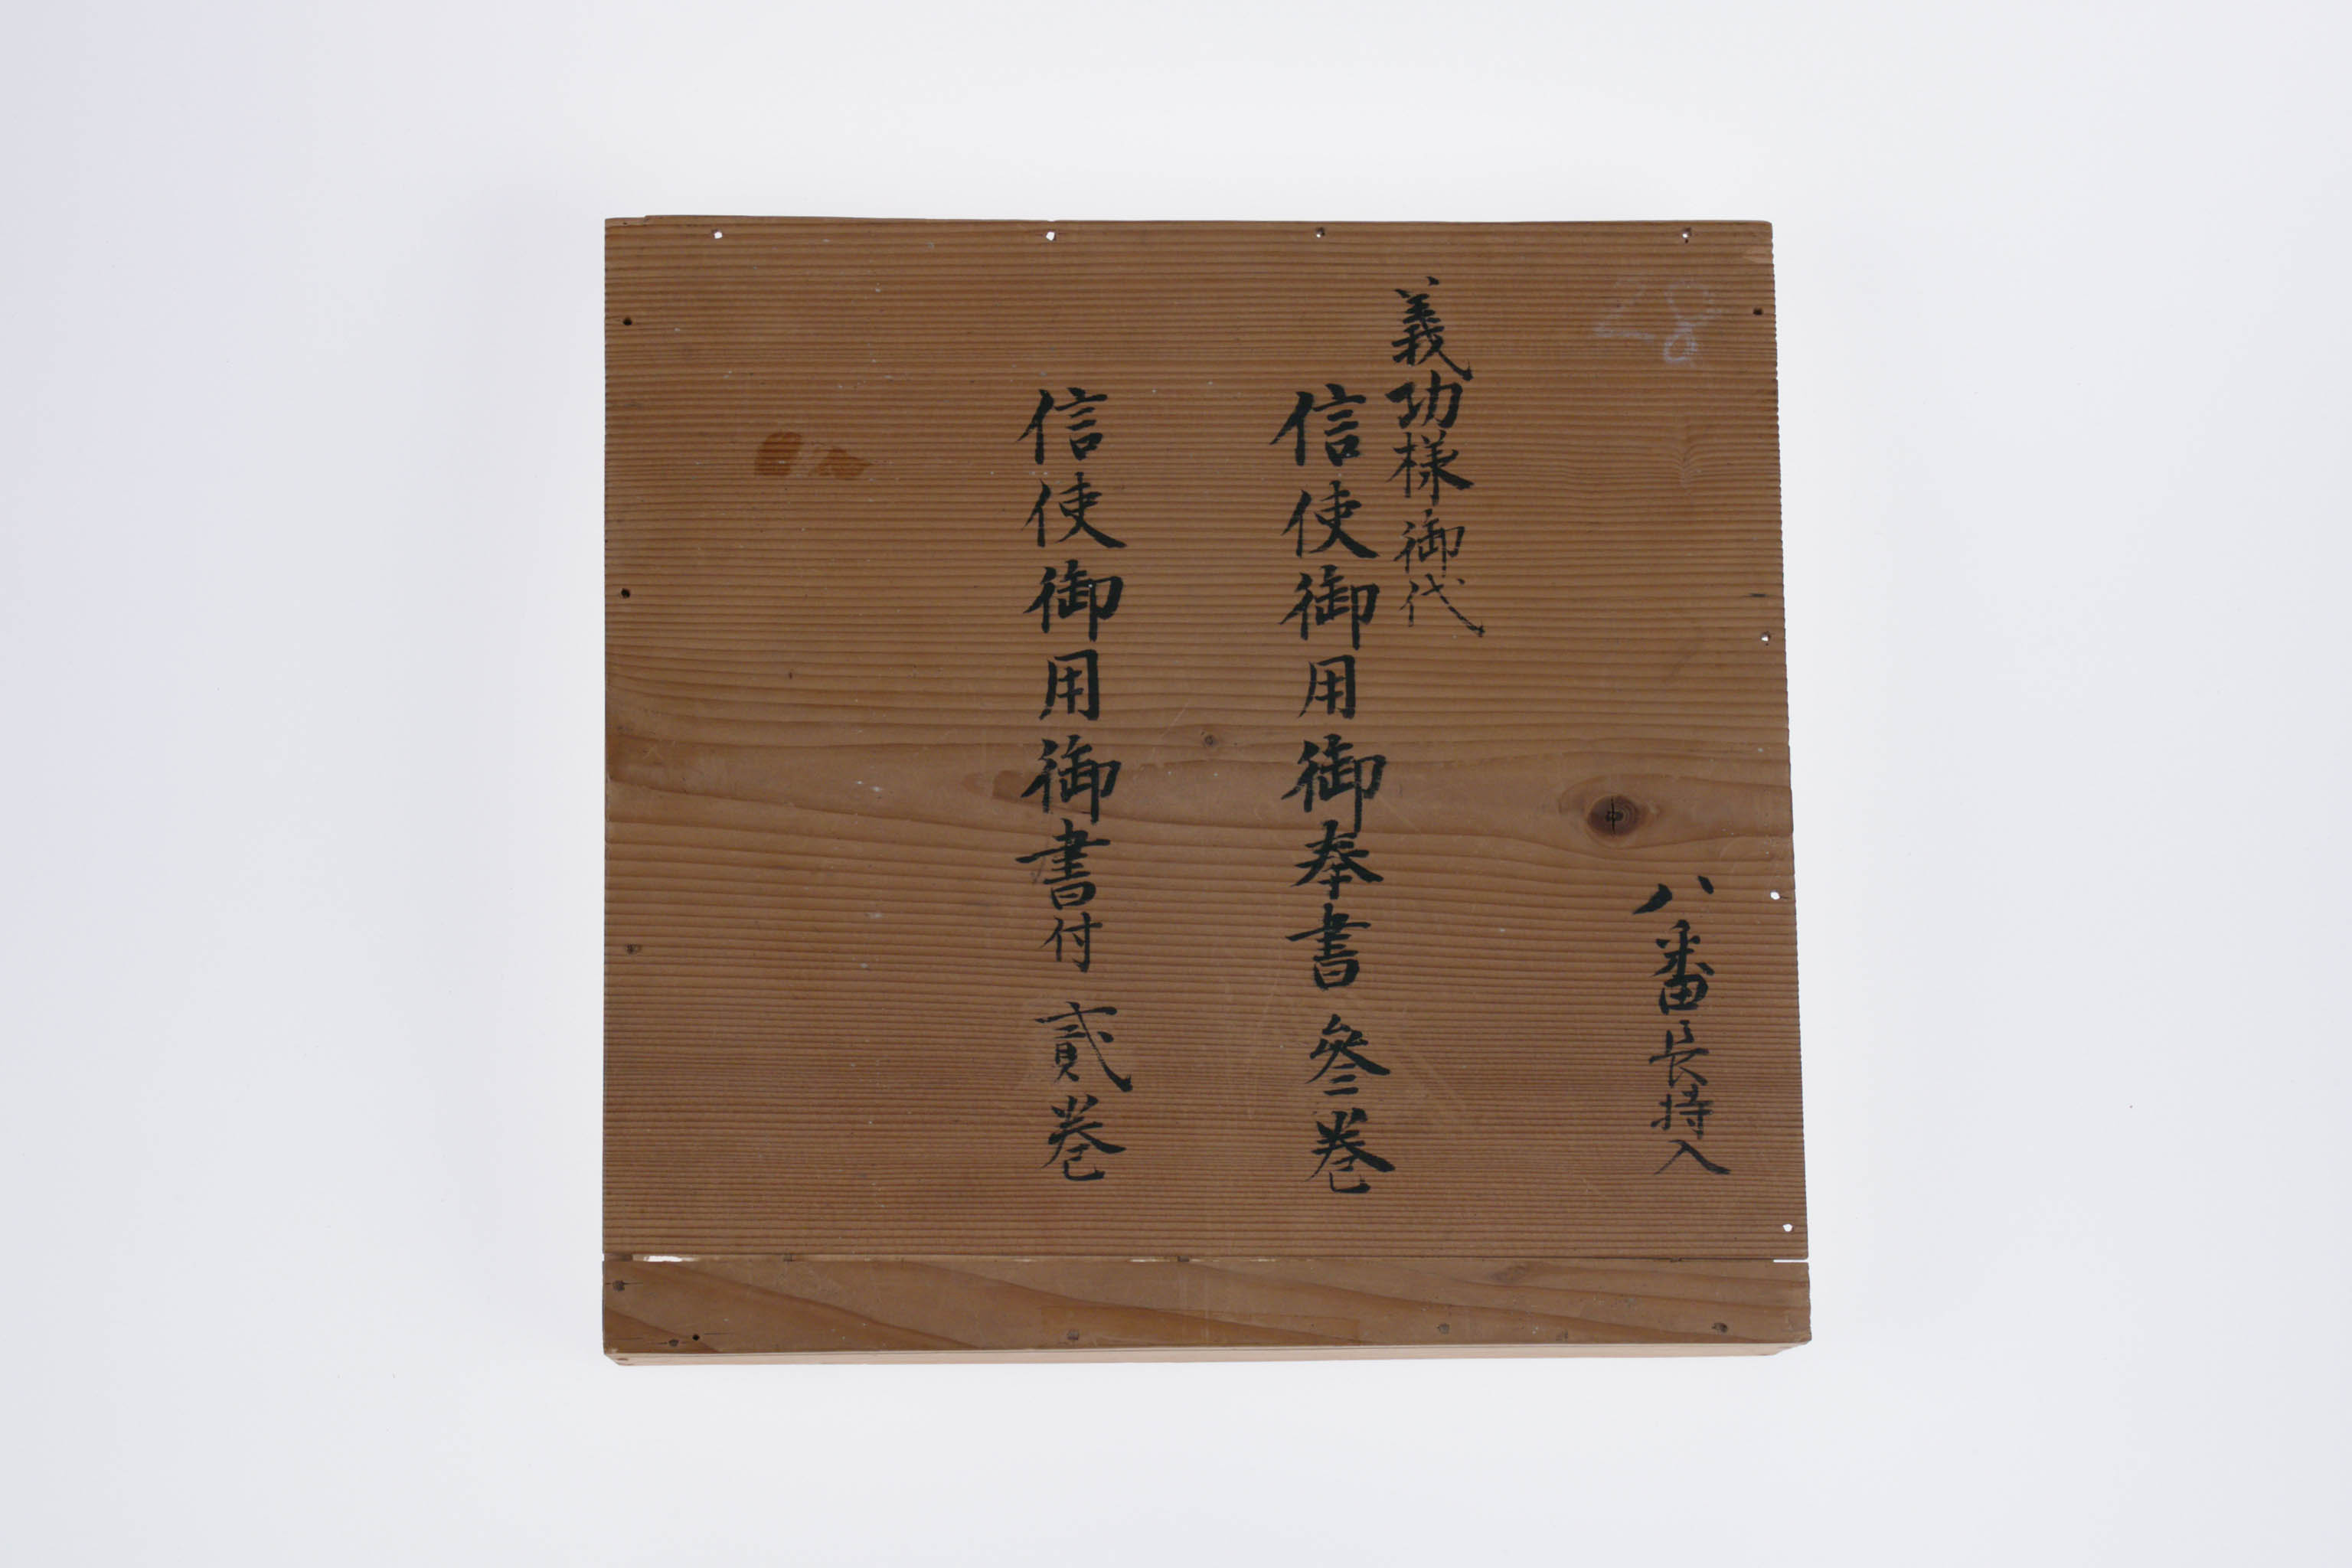 28
八番長持入
義功様御代
信使御用御奉書 叄巻
信使御用御書付 貳巻